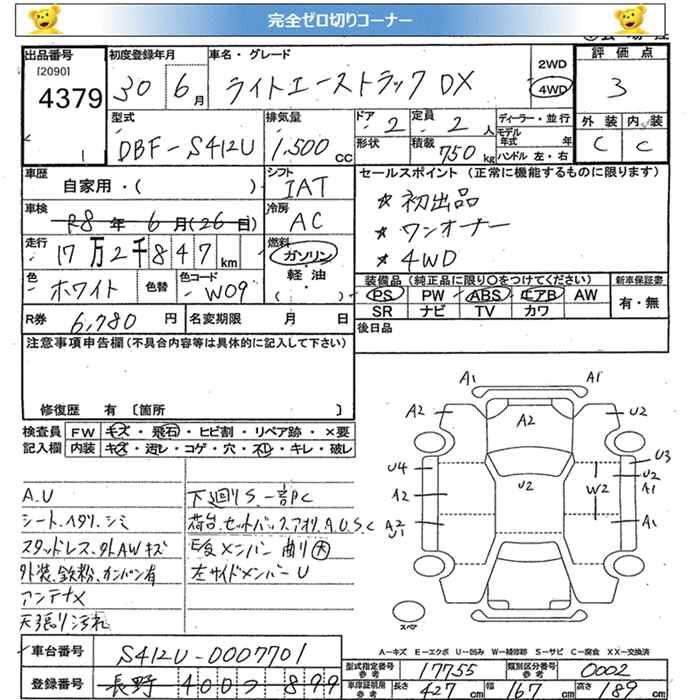 完全ゼロ切りコーナー
出品番号 初度登録年月 車名・グレード 2WD 評価点
[2090] 30 6月 ライトエーストラック DX 4WD 3
4379
1
型式 排気量 ドア 定員 ディーラー・並行 外装 内装
DBF-S412U 1,500cc 2 2人 モデル年式 年 C C
形状 積載 750kg ハンドル 左・右
車歴 シフト セールスポイント(正常に機能するものに限ります)
自家用・( ) IAT
車検 R8年6月(26日) 冷房 AC
☆初出品
☆ワンオーナー
☆4WD
走行 17万2千847km 燃料 ガソリン・軽油( )
色 ホワイト 色替 色コード W09
装備品(純正品に限り○をつけてください) 新車保証書
PS PW ABS エアB AW 有・無
SR ナビ TV カワ
R券 6,780円 名変期限 月 日
後日品
注意事項申告欄(不具合内容等は具体的に記入して下さい)
修復歴 有〔箇所 〕
検査員 FW キズ・飛石・ヒビ割・リペア跡・×要
記入欄 内装 キズ・汚レ・コゲ・穴・スレ・キレ・破レ
A1 A1
A2 A2 U2
U4 U2 U3
A2 W2 U2 A1
A2 U1 A1
スペア
A.U 下廻りS.一部C
シート.ヘタリ.シミ 荷台.セットバック.アオリ.A.U.S.C
スタッドレス.外AWキズ メンバー曲り大
外装.鉄粉.カンバン有 左サイドメンバーU
アンテナX
天張り汚れ
A-キズ E-エクボ U-凹み W-補修跡 S-サビ C-腐食 XX-交換済
車台番号 S412U-0007701
型式指定番号 参考 17755 類別区分番号 参考 0002
登録番号 長野 400 899
車庫証明用 参考 長さ 427cm 幅 167cm 高さ 189cm